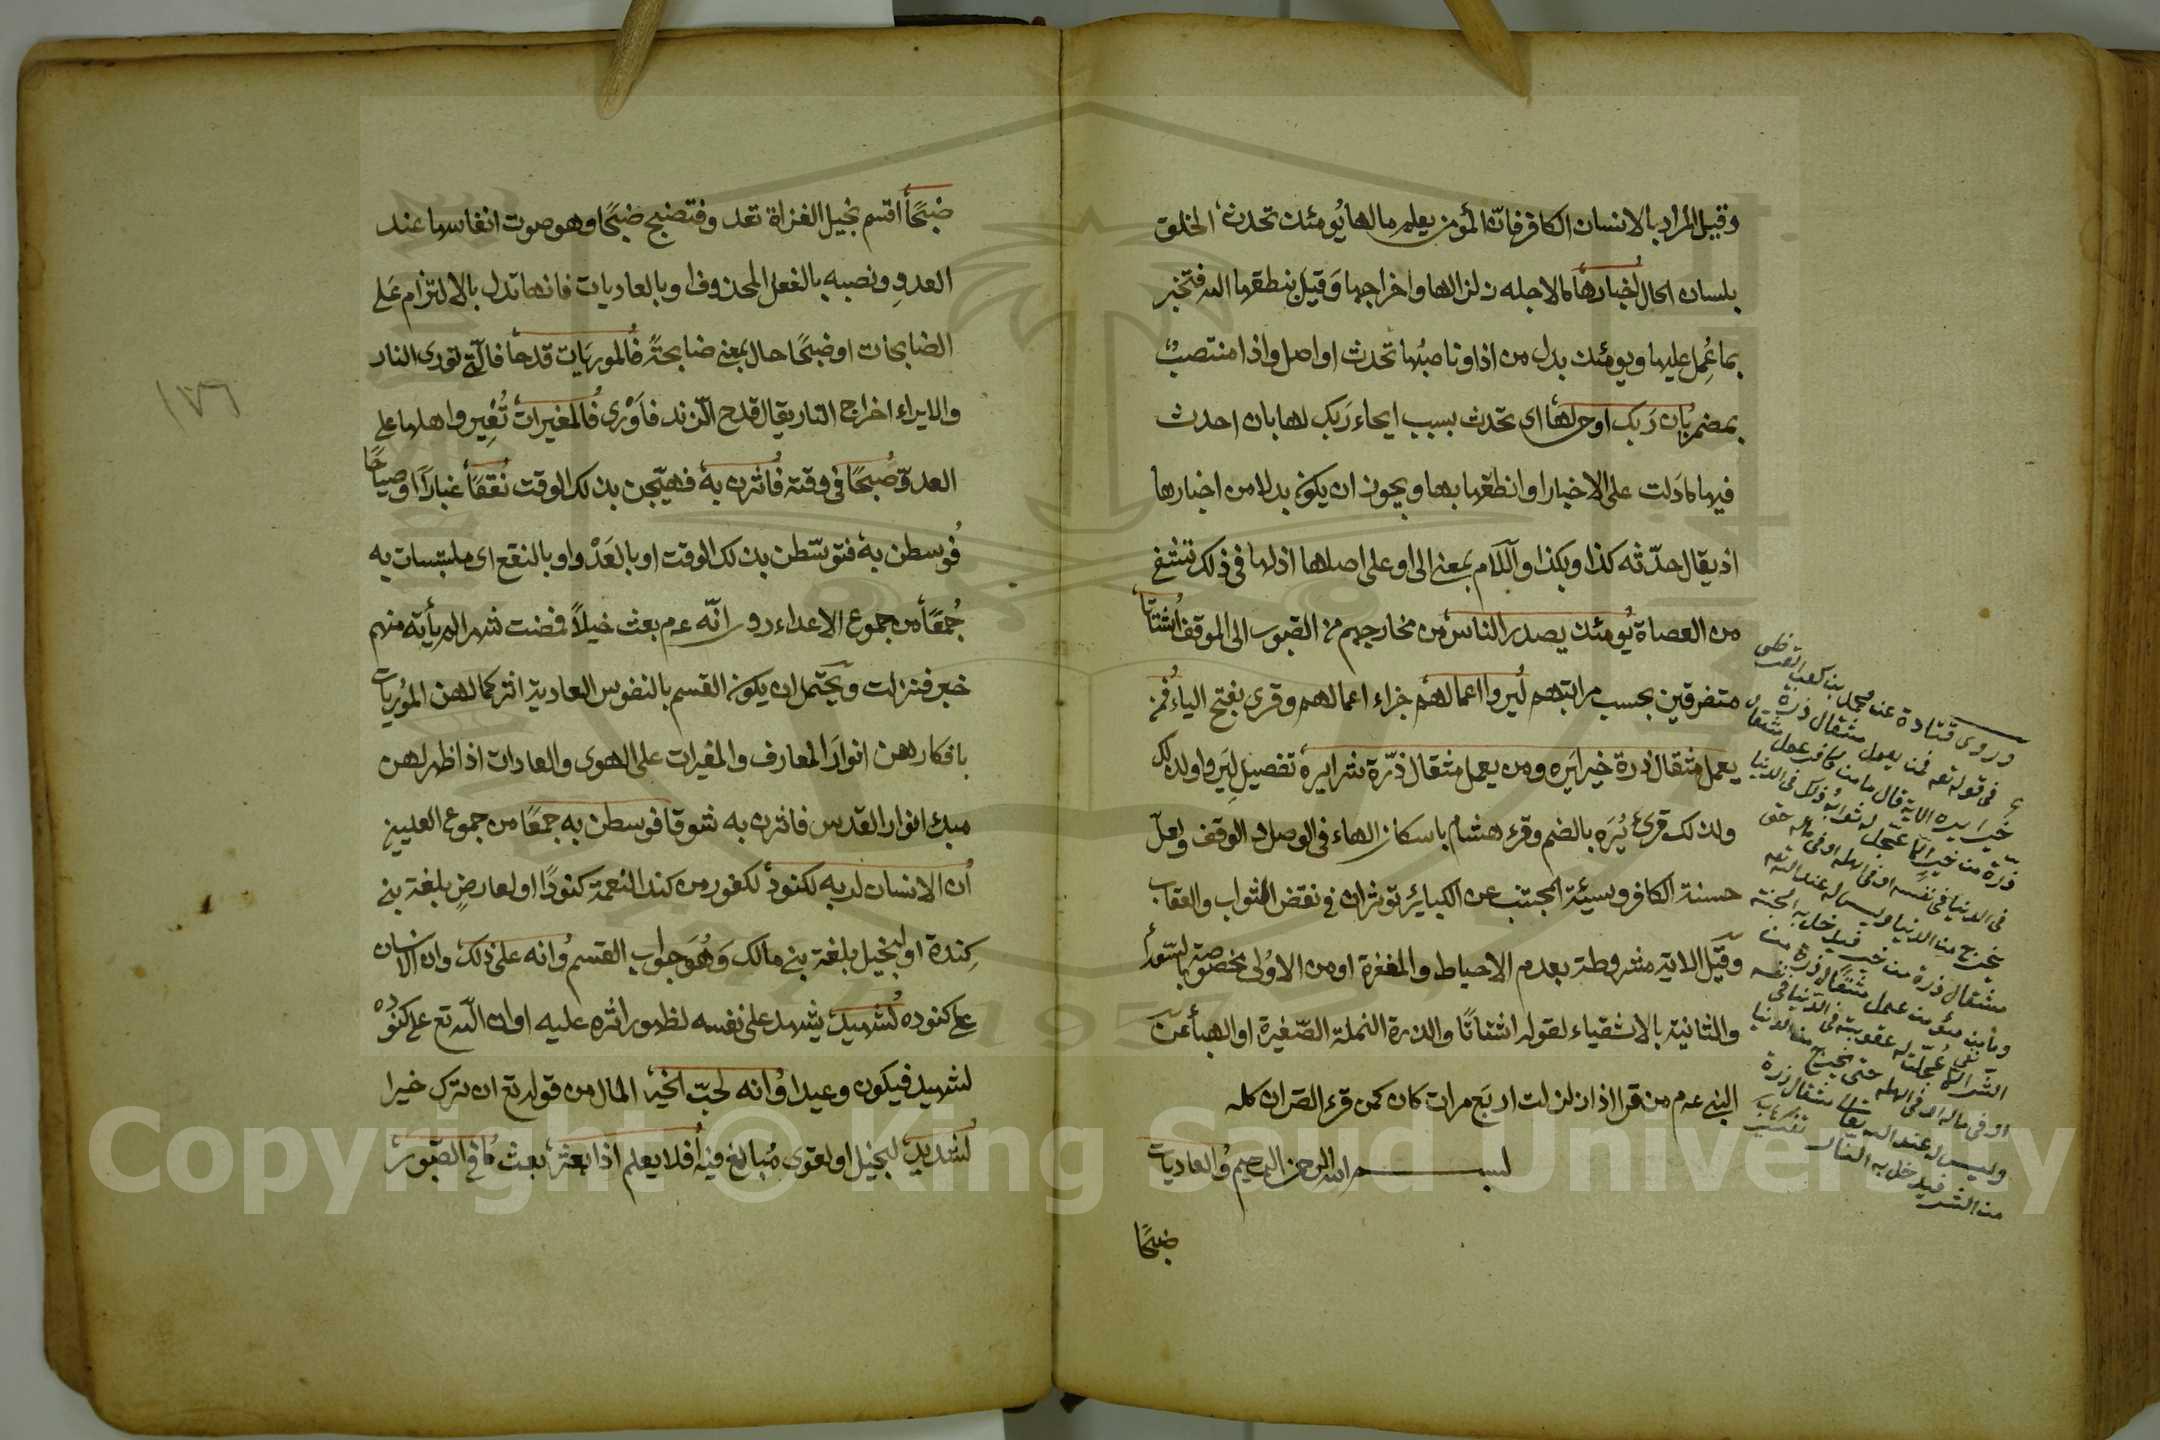 وقيل المراد بالانسان الكافر فان المؤمن يعلم مالها يومئذ تحدث الخلق
بلسان الحال اخبارها مالاجله زلزالها واخراجها وقيل ينطقها الله فتخبر
بما عُمِل عليها ويومئذ بدل من اذا وناصبُها تحدث او اصل واذا منتصبٌ
بمضمر بان رَبك اوحى لها اى تحدث بسبب ايحاء رَبك لها بان احدث
فيها مادَلت على الاخبار او انطقها بها ويجوز ان يكون بدلا من اخبارها
اذ يقال حدّثه كذا وبكذا واللام بمعنى الى او على اصلها اذ لها فى ذلك تشفٍ
من العصاة يومئذ يصدر الناس من مخارجهم من القبور الى الموقف اشتاتا
متفرقين بحسب مراتبهم ليروا اعمالهم جزاء اعمالهم وقرئ بفتح الياء فمن
يعمل مثقال ذرة خيرا يَره ومن يعمل مثقال ذرّة شرا يره تفصيل لِيَروا ولذلك
ولذلك قرئ يُرَه بالضم وقرء هشام باسكان الهاء فى الوصل لا الوقف ولعل
حسنة الكافر وسيئة المجتنب عن الكبائر تؤثران فى نقض الثواب والعقاب
وقيل الاية مشروطة بعدم الاحباط والمغفرة او من الاولى مخصوصة بالسّعداء
والثانية بالاشقياء لقوله اشتاتًا والذرة النملة الصّغيرة او الهباء عن
النبى عم من قرا اذا زلزلت اربع مرات كان كمن قرء القران كله
بسم الله الرحمن الرحيم والعاديات
ضبحًا
وروى قتادة عن محمد بن كعب القرظى
فى قوله تعه فمن يعمل مثقال ذرة
خيرا يره الاية قال ما من كافر عمل مثقال
ذرّة من خير الا عجّل له ثوابه ذلك فى الدنيا
فى الدنيا فى نفسه او فى اهله او فى ماله حتى
يخرج من الدنيا وليس له عند الله تعه
مثقال ذرة من خير فيدخل به الجنة
وما من مؤمن عمل مثقال ذرة من
الشر الا عُجّلت له عقوبته فى الدّنيا فى نفسه
او فى ماله او فى اهله حتى يخرج من الدنيا
وليس له عند الله تعالى مثقال ذرة
من الشر فيدخل به النار
١٧٦
ضبحًا اقسم بخيل الغزاة تعدو فتضبح ضبحًا وهو صوت انفاسها عند
العدوِ ونصبه بالفعل المحذوف او بالعاديات فانها تدل بالالتزام عَلى
الضابحات او ضبحًا حال بمعنى ضابحةً فالموريَات قدحا فالتى تورى النار
والايراء اخراج النار يقال قدح الزند فاَوْرى فالمغيرات تُغِير واهلها على
العدوّ صُبحًا فى وقته فاثرن به فهيّجن بذلك الوقت نقعًا غبارًا او صياحًا
فوسطن به فتوسّطن بذلك الوقت او بالعَدْو او بالنقع اى ملتبسات به
جُمعًا من جموع الاعداء روى انّه عم بعث خيلاً فمضت شهر الم يأته منهم
خبر فنزلت ويَحتمل ان يكون القسم بالنفوس العادية اثر كمالهن الموريات
بافكارهن انوارَ المعارف والمغيرات على الهوى والعادات اذا ظهر لهن
مبدئ انوار القدس فاثرن به شوقا فوسطن به جمعًا من جموع العليين
ان الانسان لربه لكنود لكفور من كند النعمة كنودًا او لعاصٍ بلغة بنى
كِندة او لبخيل بلغة بنى مالك وَهُوَ جواب القسم وانه على ذلك وان الانسان
على كنوده لشهيد يشهد على نفسه لظهور اثره عليه او ان الله تع على كنوده
لشهيد فيكون وعيدا وانه لحبّ الخير المال من قوله تع ان ترك خيرا
لشديد لبخيل او لقوى مُبالغ فيه افلا يعلم اذا بعثر بعث ما فى القبور
Copyright © King Saud University